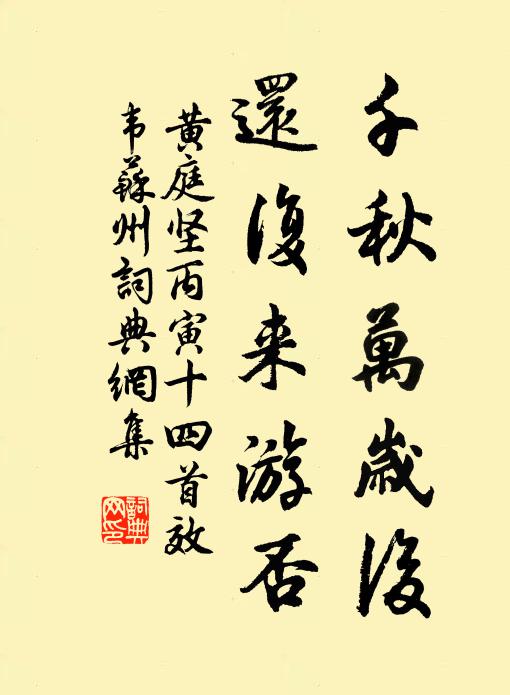 千秋萬歲後
還復来游否
黄庭坚丙寅十四首效
韦蘇州詞典網集
詞典网印